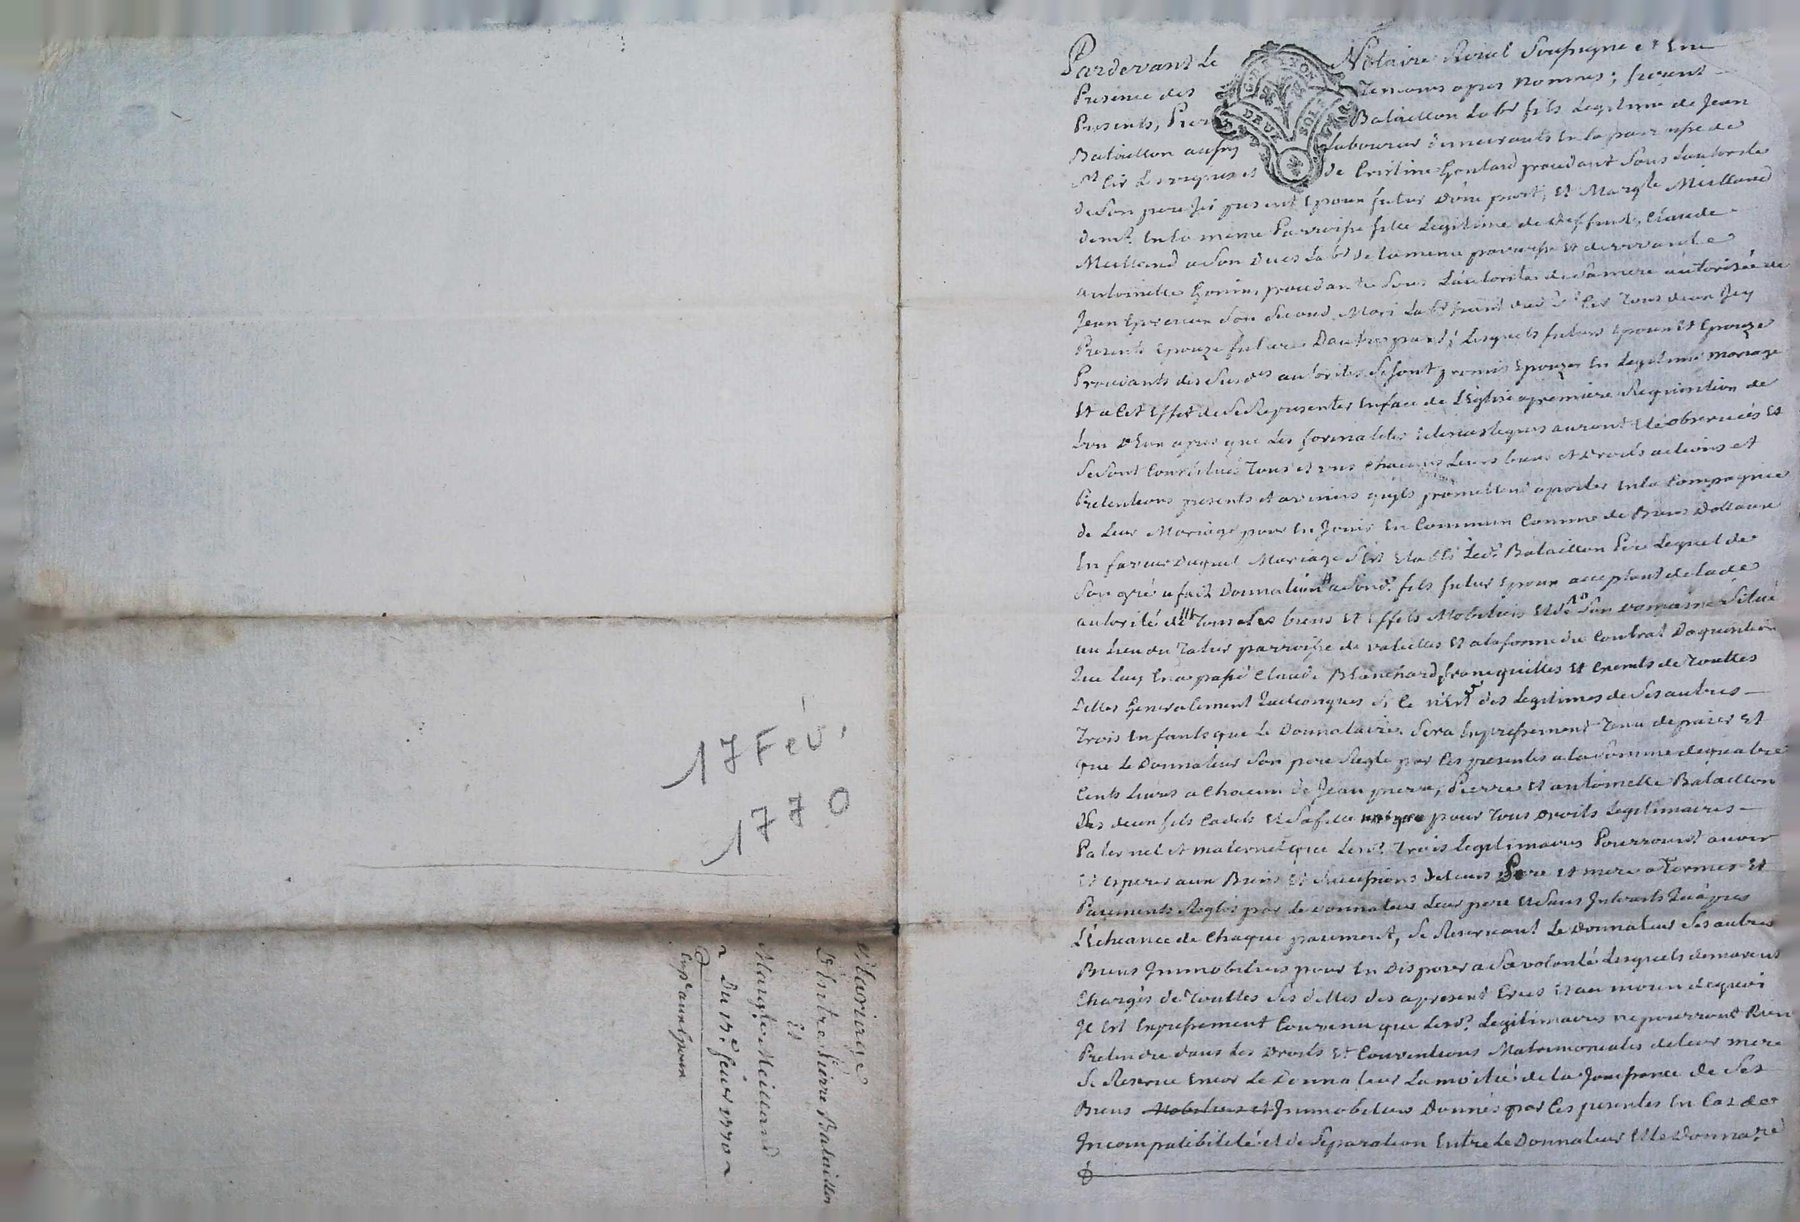 17 Fév.
1770
Mariage
Entre Pierre Bataillon
Et
Margte Meilland
Du 17e fevier 1770
Expen aux Epoux
G. DE LYON
DEUX SOLS
Pardevant Le Notaire Roial Soussigné et En
Presence des Temoins apres nommes; furent
Presents, Pierre Bataillon Labr fils Legitime de Jean
Bataillon aussy Laboureur demeurants En la parroisse de
St Cir Les vignes et de Cristine Goutard procedant Sous Lautorite
de Son pere Ici present Epoux futur Dune part; Et Margte Meilland
demt En la meme Parroisse fille Legitime de deffunt Claude
Meilland a Son Deces Labr de la meme parroisse Et de vivante
Antoinette Gonin, procedante Sous L'autorite de sa mere autorisée de
Jean Son Second Mari Labr St Cir Tous deux Icy
Presents Epouze future Dautre part; Lesquels futurs Epoux Et Epouze
Procedants des Susdes autorites Se Sont promis Epouzer En Legitime mariage
Et a Cet Effet de Se Representer En face de L'Eglise a premiere Requisition de
Lun D'Eux apres que Les formalités auront Eté observeés Et
Se Sont Constitués Tous et uns Chacuns Leurs biens et Droits actions et
Pretentions presents et avenirs quils promettent aporter En la Compagnie
de Leur Mariage pour En Jouir En Commun Comme de Biens Dotaux
En faveur Duquel Mariage S'Est Etabli Ledt Bataillon Pere Lequel de
Son gré a fait Donnation a Sondt fils futur Epoux acceptant de lade
autorité de Tous Les biens Et Effets Mobiliers Et de Son Domaine Situé
au Lieu du parroisse de valeilles Et a la forme du Contrat Daquisition
que Luy En a passé Claude Blanchard, franc quittes Et Exempts de Touttes
Dettes Generalement Quelconques Si Ce n'Est des Legitimes de Ses autres
Trois Enfants que Le Donnataire Sera Expressement Tenu de paier Et
que Le Donnateur Son pere Regle par Ces presentes a la Somme de quatre
Cents Livres a Chacun de Jean pierre, Pierre Et antoinette Bataillon
Ses deux fils Cadets Et Sa fille pour Tous Droits Legitimaires
Paternel et maternel que Lesdt Trois Legitimaires Pourroient avoir
Et Esperer aux Biens Et Successions de Leurs Pere Et mere a Termes Et
Paiements Reglés par Le Donnateur Leur pere Et Sans Interests Qu'apres
L'Echeance de Chaque paiement, Se Reservant Le Donnateur Ses autres
Biens Immobiliers pour En Disposer a Sa volonté Lesquels demeurent
Chargés de Touttes Ses dettes des apresent Crees Et au moien dequoi
Il Est Expressement Convenu que Lesdt Legitimaires ne pourront Rien
Pretendre dans Les Droits Et Conventions Matrimoniales de Leur mere
Se Reserve Encor Le Donnateur La moitié de la Jouissance de Ses
Biens Mobiliers et Immobiliers Donnés par Ces presentes En Cas de
Incompatibilité et de Separation Entre Le Donnateur Et Le Donnatre